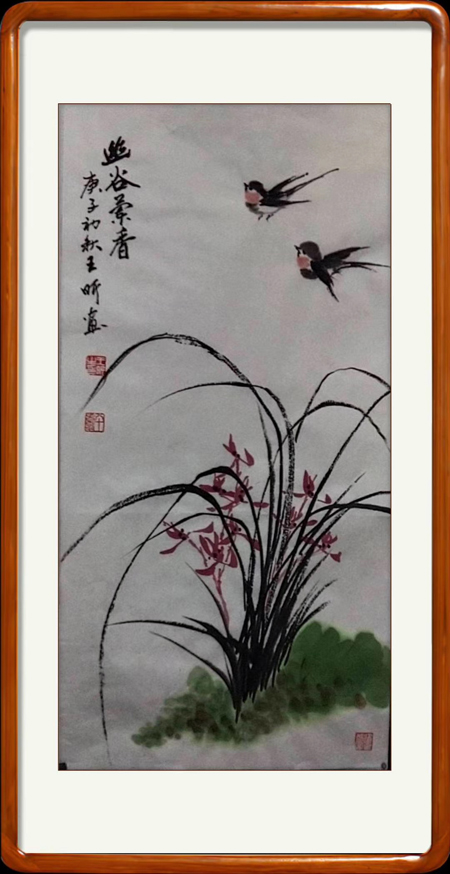 幽谷兰香
庚子初秋王昕画